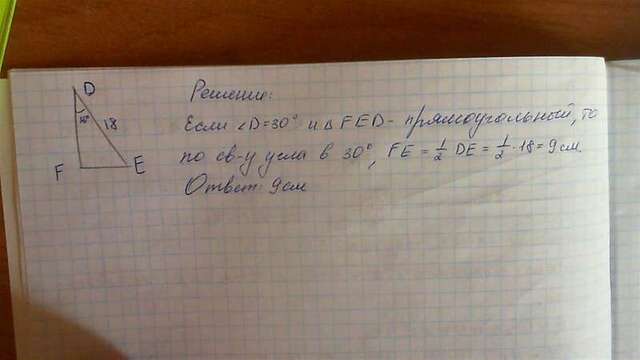 D
Решение:
30°
18
Если ∠D=30° и △FED - прямоугольный, то
по св-у угла в 30°, FE = 1/2 DE = 1/2 · 18 = 9 см.
F
E
Ответ: 9 см